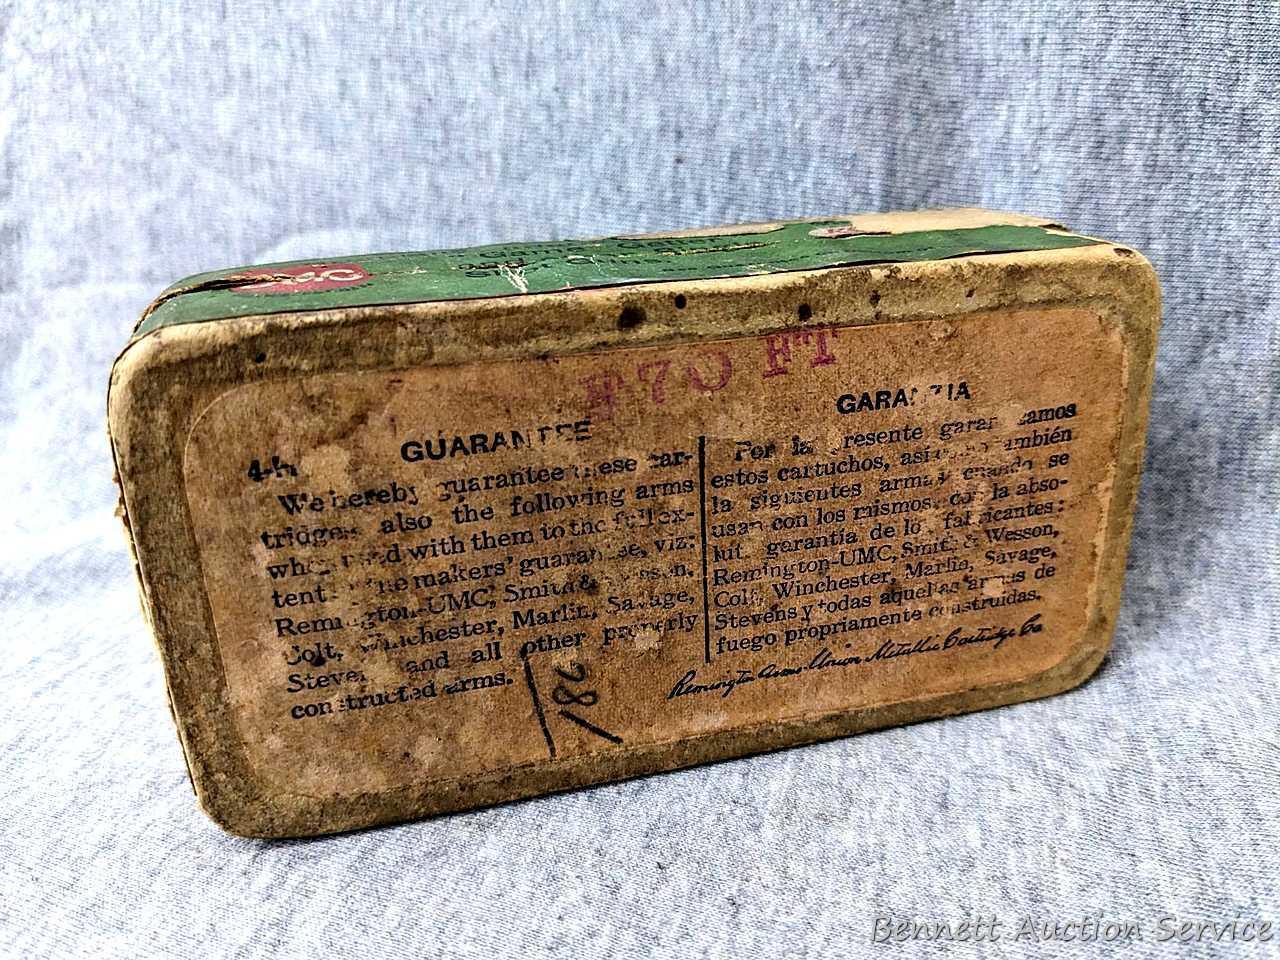 F70 FT
4-h
GUARANTEE
We hereby guarantee these car-
tridges also the following arms
when used with them to the full ex-
tent of the makers' guarantee, viz:
Remington-UMC, Smith & Wesson,
Colt, Winchester, Marlin, Savage,
Stevens and all other properly
constructed arms.
GARANTIA
Por la presente garantizamos
estos cartuchos, así como también
la siguientes armas cuando se
usan con los mismos, con la abso-
luta garantía de los fabricantes:
Remington-UMC, Smith & Wesson,
Colt, Winchester, Marlin, Savage,
Stevens y todas aquellas armas de
fuego propiamente construidas.
Remington Arms-Union Metallic Cartridge Co
Bennett Auction Service